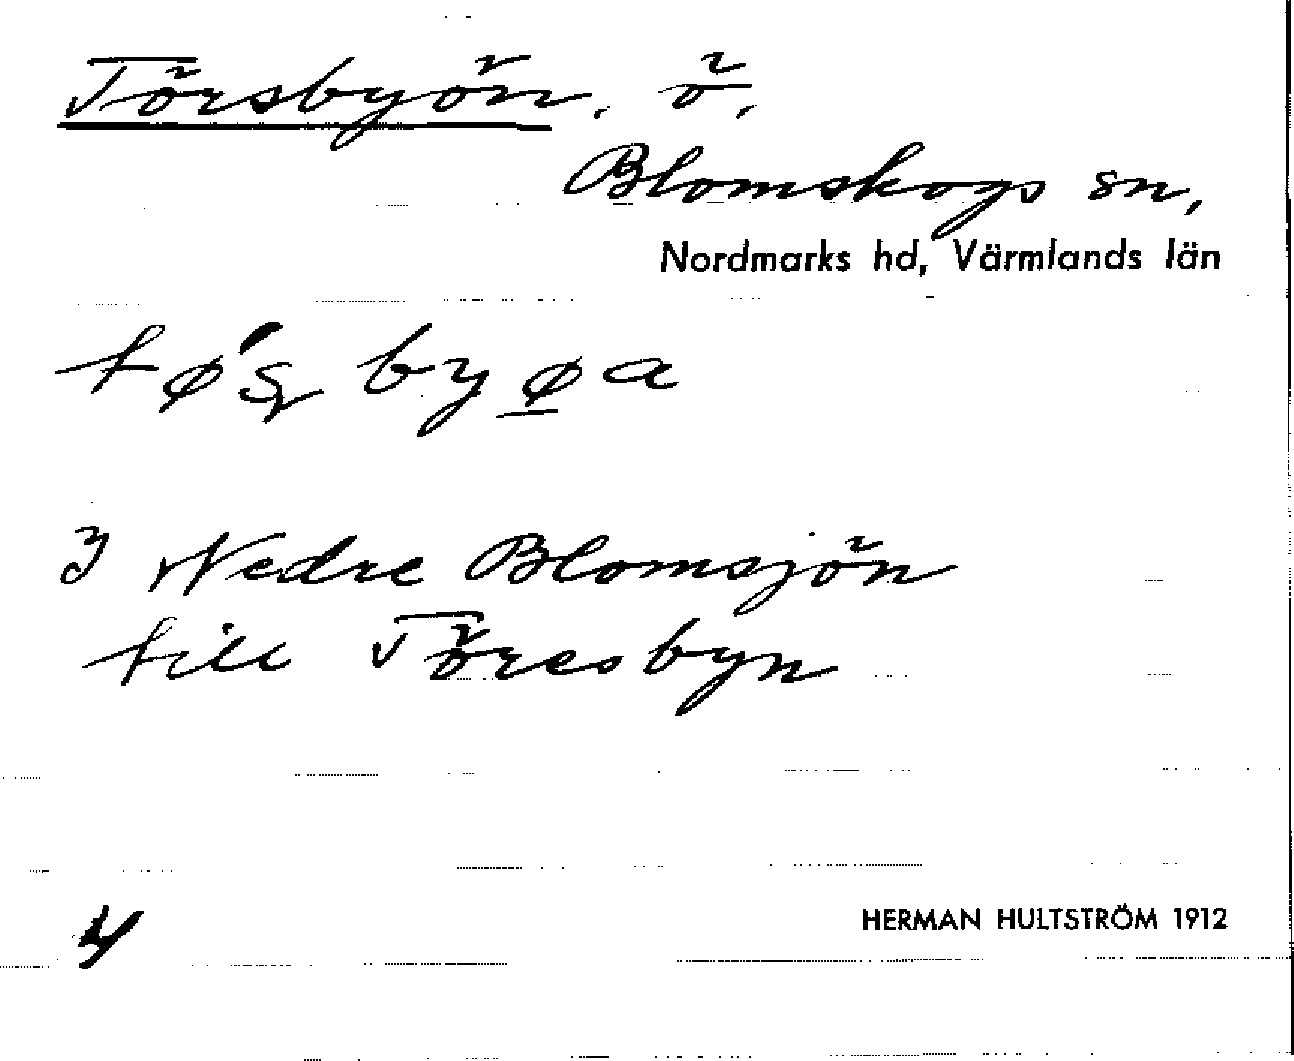 Törsbyön, ö,
Blomskogs sn,
Nordmarks hd, Värmlands län
tø´ʂbyøa
I Nedre Blomsjön
till Töresbyn
4
HERMAN HULTSTRÖM 1912